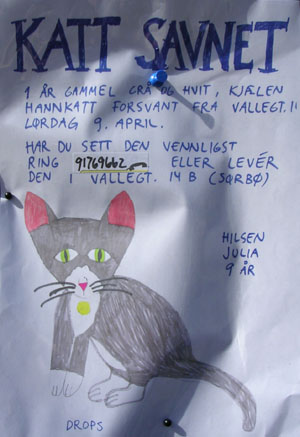 KATT SAVNET
1 ÅR GAMMEL GRÅ OG HVIT, KJÆLEN
HANNKATT FORSVANT FRA VALLEGT. 11
LØRDAG 9. APRIL.
HAR DU SETT DEN VENNLIGST
RING 91769662 ELLER LEVÉR
DEN I VALLEGT. 14 B (SØRBØ)
HILSEN
JULIA
9 ÅR
DROPS